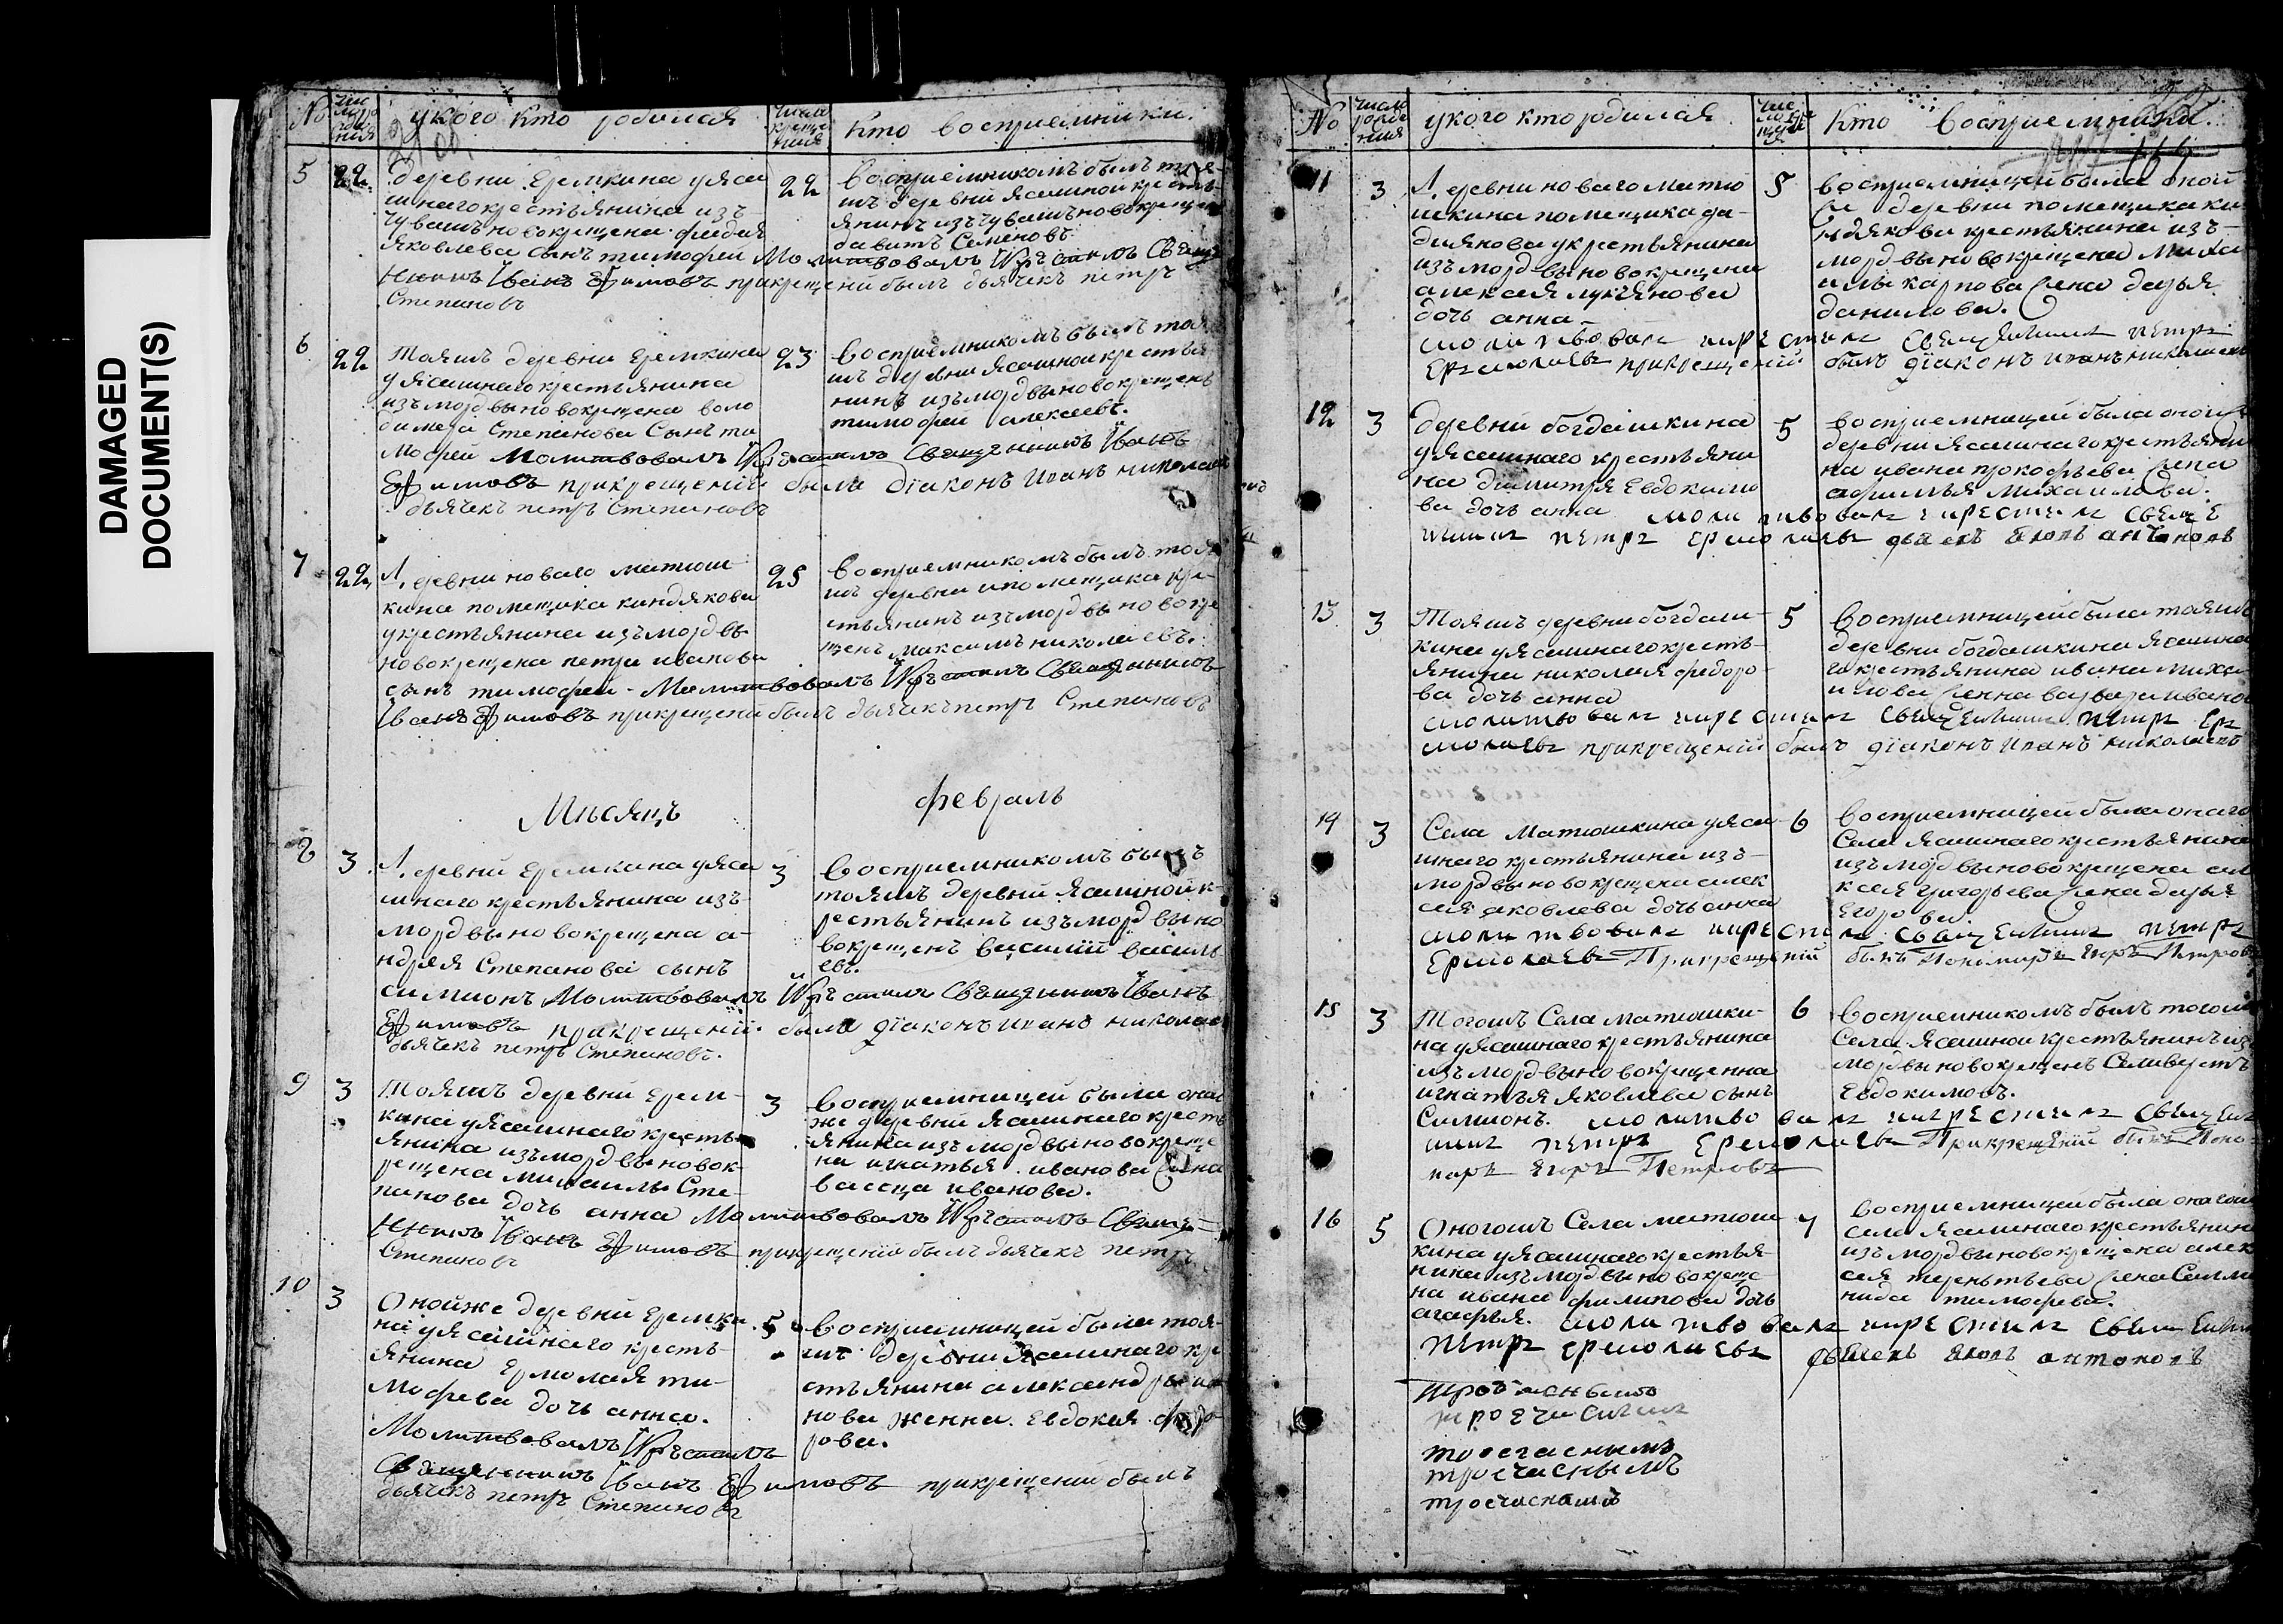 DAMAGED
DOCUMENT(S)
No
число рождения
у кого кто родился
число крещения
кто восприемники.
5 22 деревни Еремкина уяса
шнаго крестьянина изъ
чувашъ новокрещена
Яковлева сынъ тимофей Молитвовалъ Ікрестилъ Свяще
нникъ Іванъ Ефимовъ прикрещени былъ дьячекъ петръ
Степановъ
22 восприемникомъ былъ тоя
шъ деревни ясашной кресть
янинъ изъ чувашъ новокрещен
давитъ Семеновъ
6 22 Тояшъ деревни Еремкина
уясашнаго крестьянина
изъ мордвы новокрещена воло
димера Степанова Сынъ ти
мофей Молитвовалъ Ікрестилъ Священникъ Іванъ
Ефимовъ прикрещении были діаконъ Иванъ николаев
дьячекъ петръ Степановъ
23 восприемникомъ былъ тоя
шъ деревни ясашной крестья
нинъ изъ мордвы новокрещенъ
тимофей алексеевъ.
7 22 Деревни новаго матюш
кина помещика киндякова
укрестьянина изъ мордвы
новокрещена петра иванова
сынъ тимофей - Молитвовалъ Ікрестилъ Священникъ
Іванъ Ефимовъ прикрещени былъ дьячекъ петръ Степановъ
25 восприемникомъ былъ тоя
шъ деревни ипомещика кре
стьянинъ изъ мордвы новокре
щенъ максимъ николаевъ.
Месяцъ февраль
8 3 Деревни Еремкина уяса
шнаго крестьянина изъ
мордвы новокрещена а-
ндрея Степанова сынъ
симионъ Молитвовалъ Ікрестилъ Священникъ Іванъ
Ефимовъ прикрещении были діаконъ Иванъ николаев
дьячекъ петръ Степановъ.
3 восприемникомъ былъ
тояшъ деревни ясашной к-
рестьянинъ изъ мордвы но
вокрещенъ василий василь
евъ.
9 3 Тояшъ деревни Ерем-
кина уясашнаго кресть
янина изъ мордвы новок-
рещена михаилы Сте-
панова дочь анна Молитвовалъ Ікрестилъ Свяще-
нникъ Іванъ Ефимовъ прикрещении былъ дьячекъ петръ
Степановъ
3 восприемницей была оной
же деревни ясашнаго кресть
янина изъ мордвы новокреще
на игнатья иванова жена
васса иванова.
10 3 Онойже деревни Еремки
на уясашнаго кресть
янина Ермолая ти-
мофева дочь анна.
Молитвовалъ Ікрестилъ
Священникъ Іванъ Ефимовъ прикрещении былъ
дьячекъ петръ Степановъ
5 восприемницей была тоя-
шъ деревни ясашнаго кре
стьянина александра ива
нова женна Евдокия федо
рова.
No
число рождения
у кого кто родился
кто восприемники.
11 3 Деревни новаго матю
шкина помещика
укрестьянина
изъ мордвы новокрещена
алексея лукьянова
дочь анна
молитвовалъ икрестилъ Священникъ петръ
Ермолаевъ прикрещении былъ діаконъ иванъ николаевъ
5 восприемницей была оной
же деревни помещика ки
ндякова крестьянина изъ
мордвы новокрещена миха
илы карпова жена дарья
данилова.
12 3 деревни богдашкина
уясашнаго крестьяни
на димитрея Евдокимо
ва дочь анна молитвовалъ икрестилъ Свяще
нникъ петръ Ермолаевъ дьячекъ яковъ антоновъ
5 восприемницей была оной
деревни ясашнаго крестьяни
на ивана прокофьева жена
афимья михаилова.
13 3 Тояшъ деревни богдаш-
кина уясашнаго кресть-
янина николая федоро-
ва дочь анна
молитвовалъ икрестилъ Священникъ петръ Ер
молаевъ прикрещении былъ діаконъ иванъ николаевъ
5 восприемницей была тояшъ
деревни богдашкина ясашна
го крестьянина ивана миха
илова женна варвара иванов
14 3 Села Матюшкина уяса
шнаго крестьянина изъ-
мордвы новокрещена алек
сея яковлева дочь анна
молитвовалъ икрестилъ Священникъ петръ
Ермолаевъ Прикрещении былъ Пономарь Егоръ Петровъ
6 восприемницей была онаго
Села ясашнаго крестьянина
изъ мордвы новокрещена але
ксея григорьева жена дарья
Егорова.
15 3 Тогошъ Села матюшки-
на уясашнаго крестьянина
изъ мордвы новокрещенна
игнатья яковлева сынъ
Симионъ. молитвовалъ икрестилъ Священ
никъ петръ Ермолаевъ Прикрещении былъ Поно-
марь Егоръ Петровъ
6 восприемникомъ былъ тогошъ
Села ясашной крестьянинъ изъ
мордвы новокрещенъ Селиверстъ
Евдокимовъ.
16 5 Оногошъ Села матюш
кина уясашнаго крестья-
нина изъ мордвы новокреще-
на ивана филипова дочь
агафья. молитвовалъ икрестилъ Священникъ
петръ ермолаевъ дьячекъ яковъ антоновъ
7 восприемницей была онагошъ
села ясашнаго крестьянин
изъ мордвы новокрещена алек
сея терентьева жена Сала
нида тимофева.